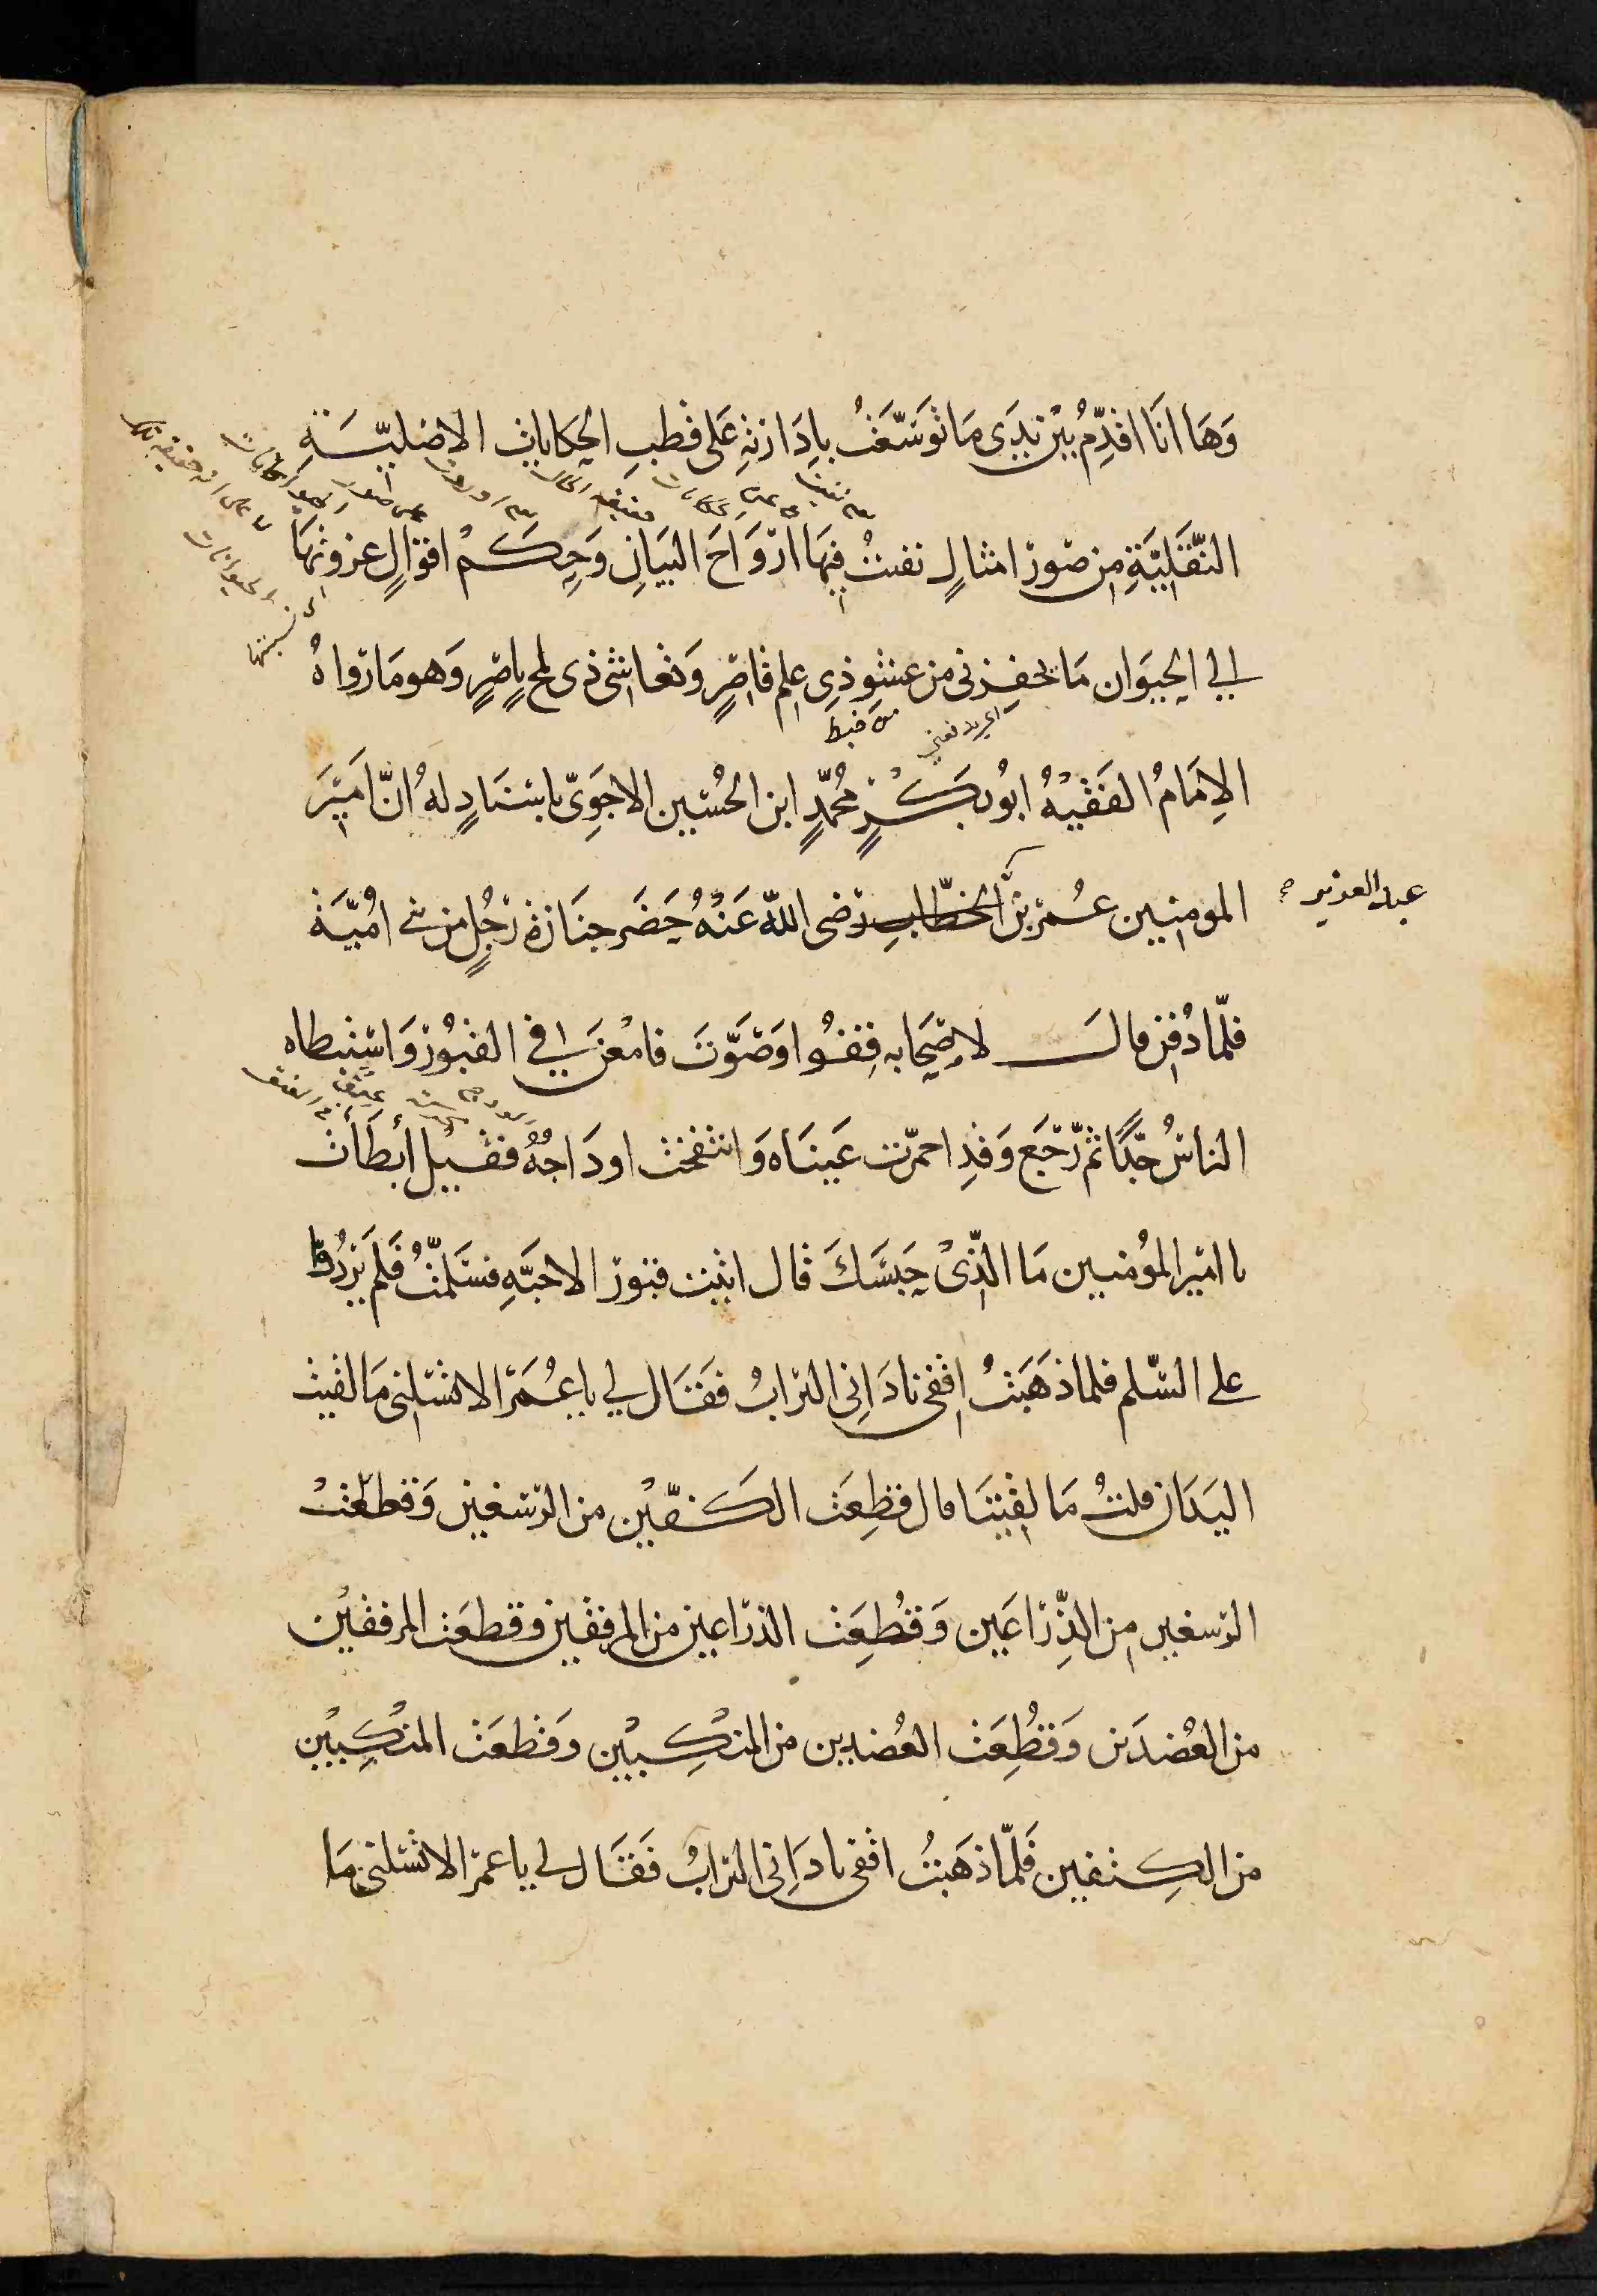 وَهَا انَا اقدِّمُ بَيْن يَدَى مَا توَسَّعَتُ بادَارَتِه عَلى قطبِ الحِكاياتِ الاصْليّـَـةِ
النّقليَّةِ مِن صُورَ امثالٍ نفثتُ فيهَا ارْوَاحَ البَيَانِ وَحِكَـمْ اقوَالٍ عزوتهَا
الي الحيَوَان مَا يحفزنى من عشو ذى علم قاصِرٍ وَتعاشى ذى لمح باصِرٍ وَهو مَا رَواهُ
الاِمَامُ الفَقيْهُ ابُو بَكـرٍ محُمّدٍ ابن الحُسَين الاجرىّ باسْنَادٍ لهُ انّ امَيْرَ
المومِنِين عُمَرَ بْن الخطّابِ رَضى اللهُ عَنْهُ حَضَر جنَازة رَجُلٍ من بنى اُمَيَّة
عبد العزيز صح
فلمّا دُفِن قالَ لاصْحَابه قِفُوا وَصَوَّتَ فامْعَن في القبُوْر وَاسْتبطاه
الناسُ جدًّا ثمّ رَجَع وَقدِ احمرّت عَينَاه وَانتفخت اودَاجُهُ فقيْل أبطَأت
يا امَيْر المُومنين مَا الّذىْ حَبسَكَ قال اتيت قبُور الاحبَّةِ فسَلمّتُ فَلم يَرُدّوا
على السّلم فلما ذهَبَتُ اقفى نادَانِى الترابُ فقَال لي يا عُمَرَ الا تسْئلنى مَا لقيت
اليَدَان قلتُ مَا لقيَتا قال قطِعَت الكـفّيْن من الرّسغين وَقطعَتْ
الرّسغين مِن الذِّرَاعَين وَقطُعَِت الذرَاعين من المرفقَين وقطعَت المرفقيْن
من العُضدَين وَقطُعَِت العُضديين من المنْكِـبيْن وَقطعَت المنكِبيْن
من الكِـتفين فَلمّا ذهَبتُ اقفى نادَانِى الترابُ فقَال لي يا عمرَ الا تسْئلنى مَا